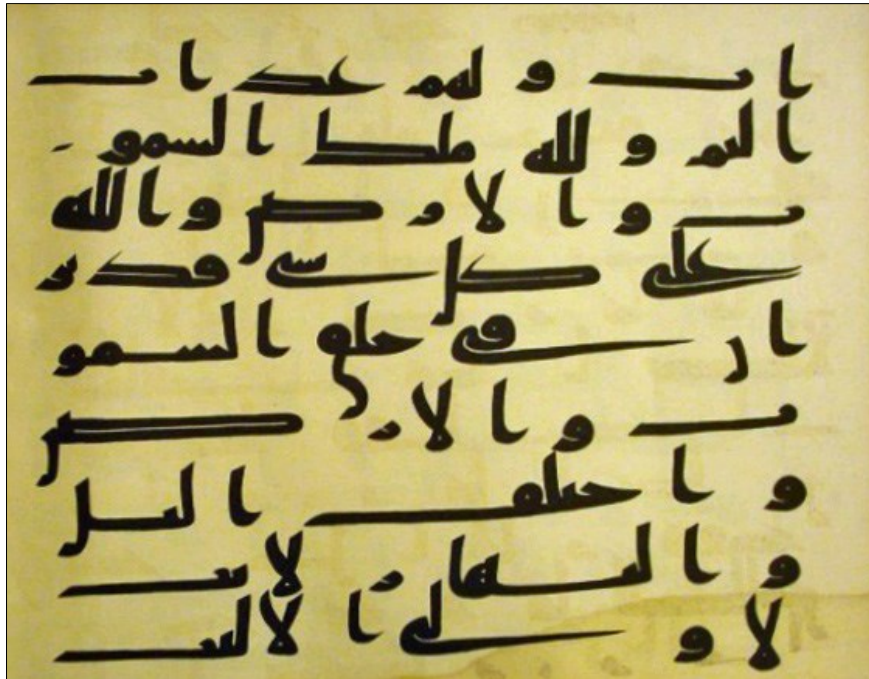 اب ولهم عذاب
اليم ولله ملك السمو
ت والارض والله
على كل شى قدير
ان فى خلق السمو
ت والارض
واختلف اليل
والنهار لايت
لاولى الالبب